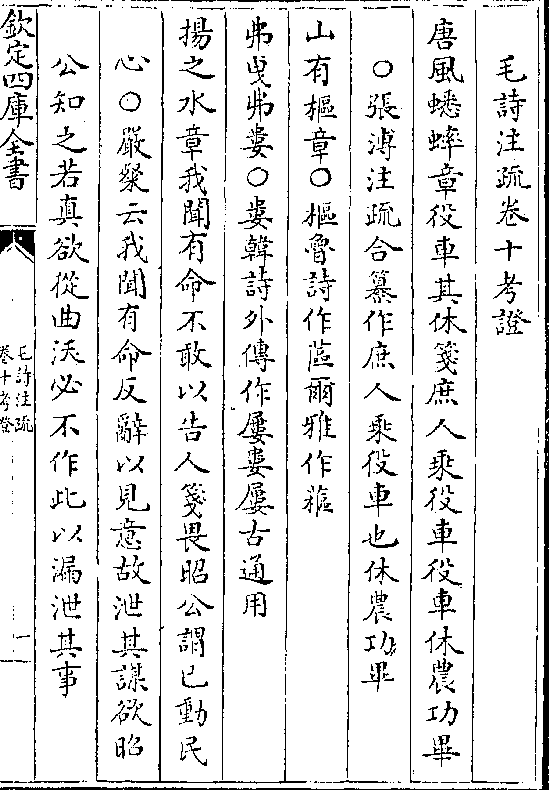 毛詩注疏卷十考證
唐風蟋蟀章役車其休箋庶人乘役車役車休農功畢
○張溥注疏合纂作庶人乘役車也休農功畢
山有樞章○樞魯詩作蓲爾雅作藲
弗曳弗婁○婁韓詩外傳作屢婁屢古通用
揚之水章我聞有命不敢以告人箋畏昭公謂己動民
心○嚴粲云我聞有命反辭以見意故泄其謀欲昭
公知之若真欲從曲沃必不作此以漏泄其事
欽定四庫全書
毛詩注疏
卷十考證
一